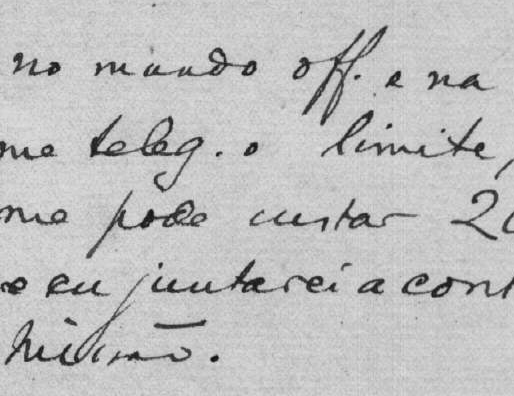 no mundo off. e na
me teleg. o limite,
me pode custar 20
e eu juntarei a cont
Missão.